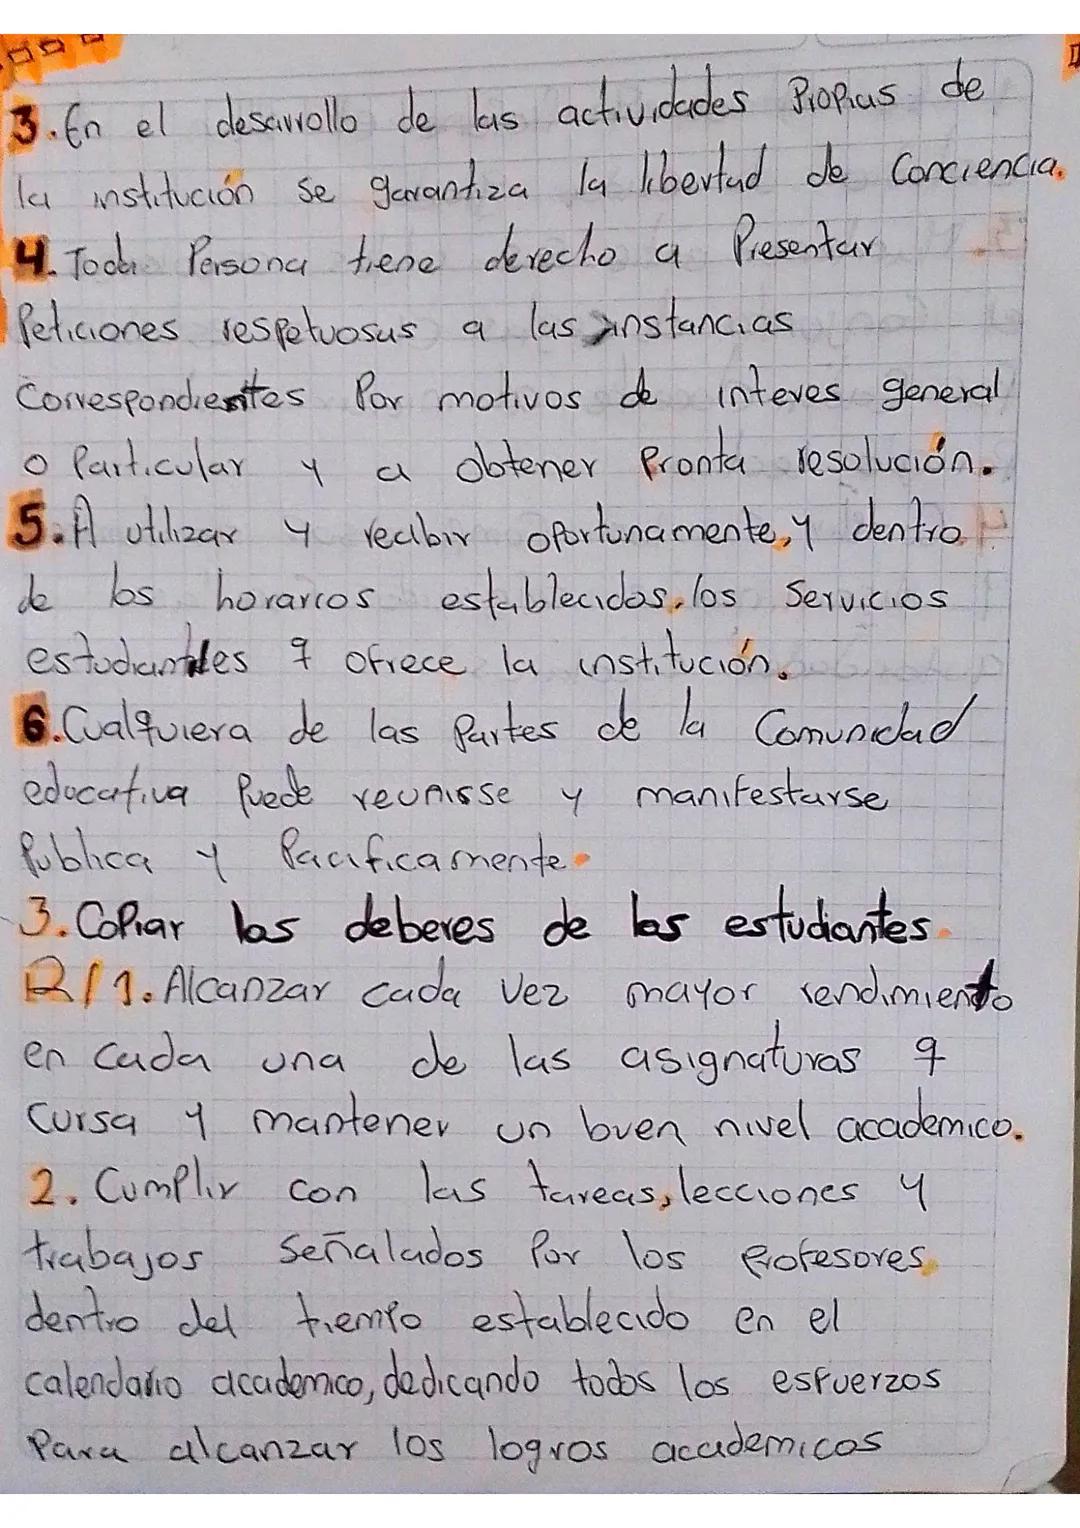 3. En el desarrollo de las actividades Propias de
la institución se garantiza la libertad de Conciencia.
4. Toda Persona tiene derecho a Presentar
Peticiones respetuosas a las instancias
Correspondientes Por motivos de interes general
o Particular y a obtener Pronta resolución.
5. A utilizar y recibir oportunamente, y dentro
de los horarios establecidos, los Servicios
estudiantiles q ofrece la institución.
6. Cualquiera de las Partes de la Comunidad
educativa Puede reunirse y manifestarse
Publica y Pacificamente.
3. Copiar los deberes de los estudiantes.
R/ 1. Alcanzar cada vez mayor rendimiento
en cada una de las asignaturas q
cursa y mantener un buen nivel academico.
2. Cumplir con las tareas, lecciones y
trabajos Señalados Por los Profesores,
dentro del tiempo establecido en el
calendario academico, dedicando todos los esfuerzos
Para alcanzar los logros academicos